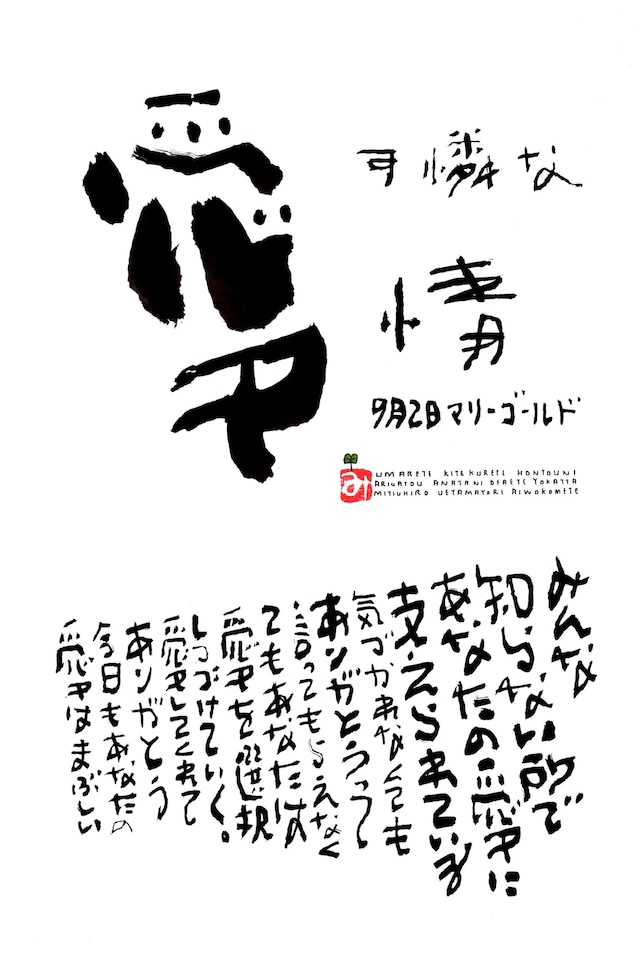 可憐な
愛
情
9月2日マリーゴールド
み
UMARETE KITEKURETE HONTOUNI
ARIGATOU ANATANI DEAETE YOKATTA
MITSUHIRO UETAMAYORI AIWOKOMETE
みんな
知らない所で
あなたの愛に
支えられている
気づかれなくても
ありがとうって
言ってもらえなく
てもあなたは
愛を選択
しつづけていく。
愛してくれて
ありがとう
今日もあなたの
愛はまぶしい